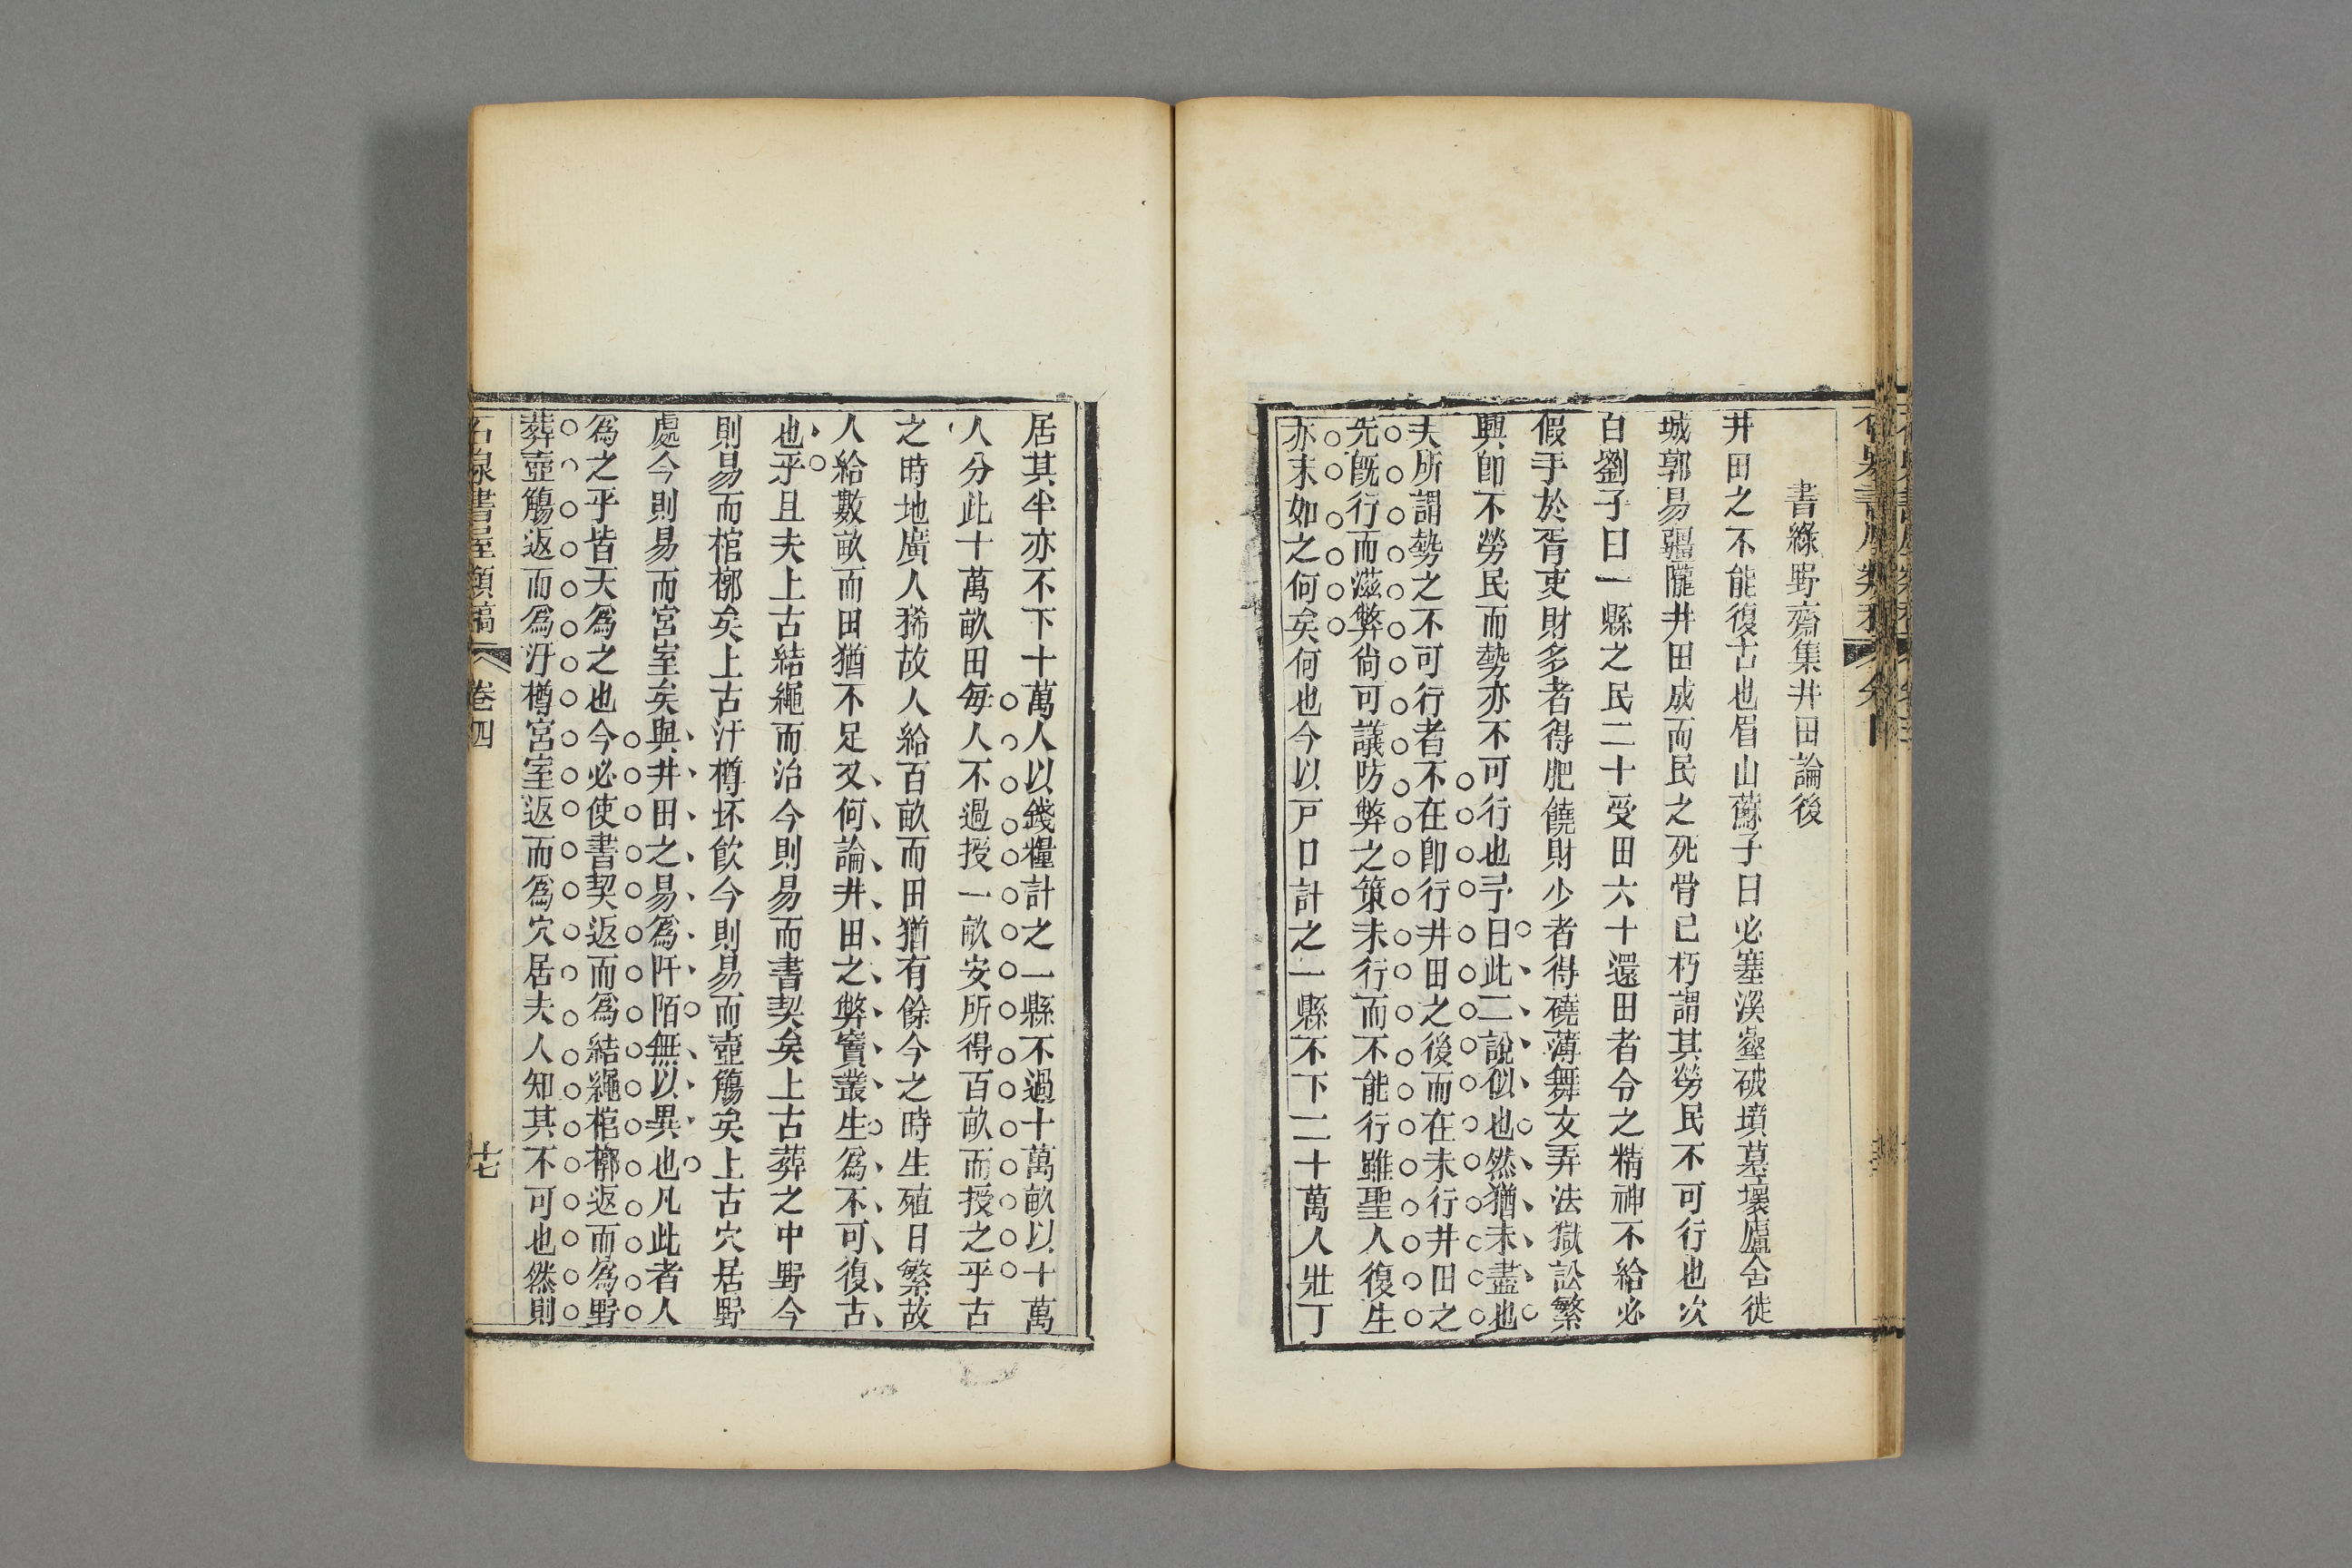 書綠野齋集井田論後
井田之不能復古也眉山蘇子曰必塞溪壑破墳墓壞廬舍徙
城郭易疆隴井田成而民之死骨已朽謂其勞民不可行也次
白劉子曰一縣之民二十受田六十還田者令之精神不給必
假手於胥吏財多者得肥饒財少者得磽薄舞文弄法獄訟繁
興卽不勞民而勢亦不可行也予曰此二說似也然猶未盡也
夫所謂勢之不可行者不在卽行井田之後而在未行井田之
先旣行而滋弊尙可議防弊之策未行而不能行雖聖人復生
亦末如之何矣何也今以戸口計之一縣不下二十萬人壯丁
居其半亦不下十萬人以錢糧計之一縣不過十萬畝以十萬
人分此十萬畝田每人不過授一畝安所得百畝而授之乎古
之時地廣人稀故人給百畝而田猶有餘今之時生殖日繁故
人給數畝而田猶不足又何論井田之弊竇叢生爲不可復古
也乎且夫上古結繩而治今則易而書契矣上古葬之中野今
則易而棺槨矣上古汙樽坏飮今則易而壺觴矣上古穴居野
處今則易而宮室矣與井田之易爲阡陌無以異也凡此者人
爲之乎皆天爲之也今必使書契返而爲結繩棺槨返而爲野
葬壺觴返而爲汙樽宮室返而爲穴居夫人知其不可也然則
石泉書屋類稿
卷四
十七